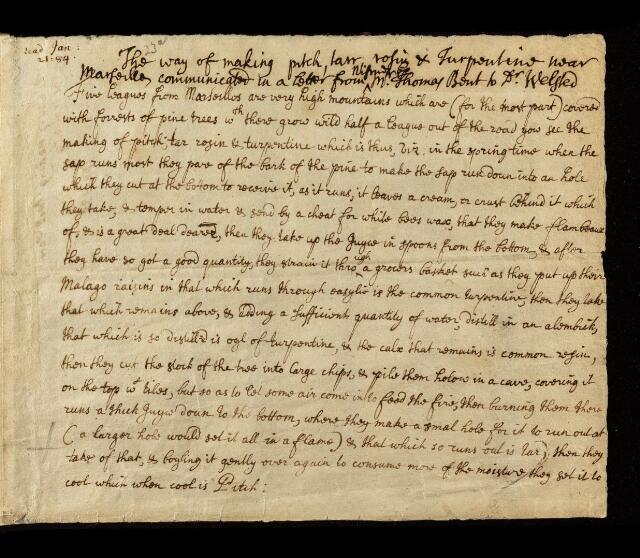 read Jan:
21: 84.
The way of making pitch, tarr, rosin & Turpentine near
Marseilles communicated in a Letter from Nismes Mr. Thomas Bent to Dr Welsted
Five leagues from Marseillos are very high mountains which are (for the most part) covered
with forrests of pine trees wch there grow wild half a league out of the road you see the
making of pitch, tar rosin & turpentine which is thus, viz, in the spring time when the
sap runs most they pare of the bark of the pine to make the sap run down into an hole
which they cut at the botom to receive it, as it runs, it leaves a cream, or crust behind it which
they take, & temper in water & send by a cheat for white bees wax, that they make flambeaux
of, & is a great deal dearer, then they take up the Juyce in spoons from the bottom, & after
they have so got a good quantity, they strain it through a grocers basket such as they put up their
Malago raisins in that which runs through easylie is the common turpentine, then they take
that which remains above, & adding a sufficient quantity of water, distill in an alembick,
that which is so distill'd is oyl of turpentine, & the calx that remains is common rosin,
then they cut the stock of the tree into large chips, & pile them holow in a cave, covering it
on the top wt tiles, but so as to let some air come in to feed the fire, then burning them there
runs a thick Juyce down to the bottom, where they make a smal hole for it to run out at
(a larger hole would set it all in a flame) & that which so runs out is tar, then they
take of that, & boyling it gently over again to consume more of the moisture they set it to
cool which when cool is Pitch: